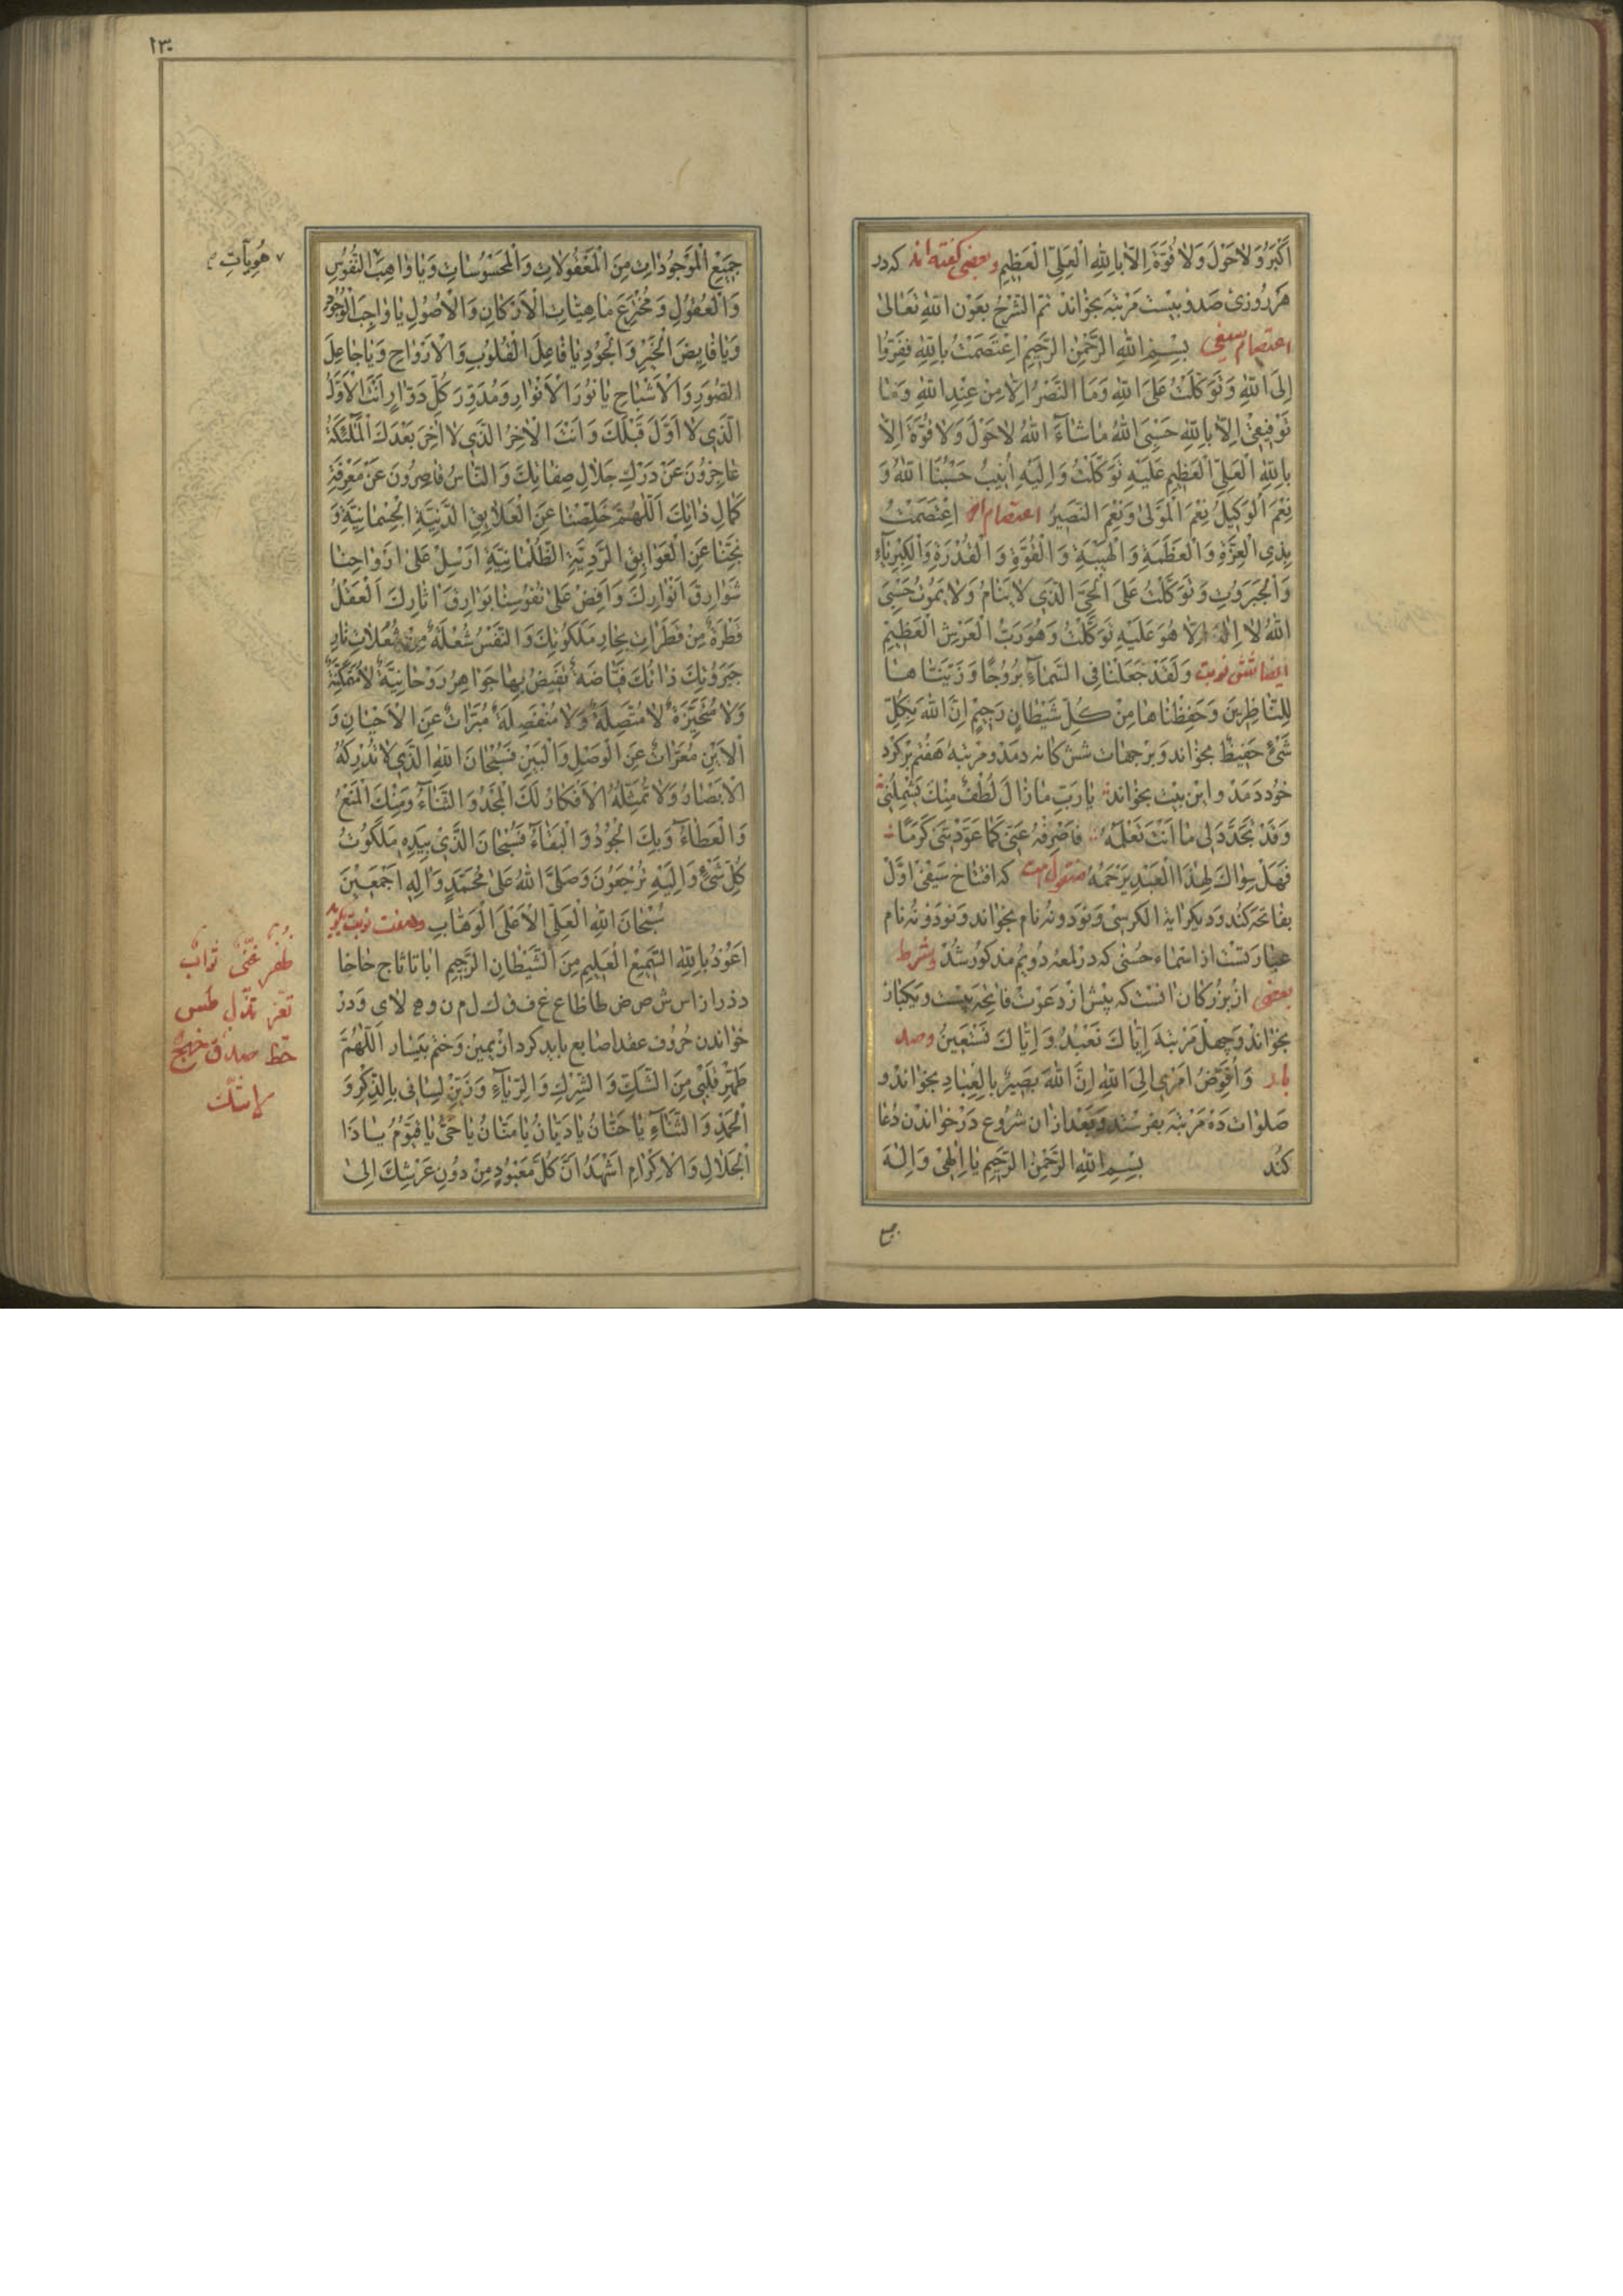 اَكْبَرُ وَلاٰ حَوْلَ وَلاٰ قُوَّةَ اِلاّٰ بِاللّٰهِ الْعَلِىِّ الْعَظِيْمِ وبعضى كفته اند كه در
هَر رُوزىٰ صَد وُ بيْسْت مَرْتبَه بخوٰاندْ تمّ الشَّرْحُ بعَوْن اللّٰهِ تعَالىٰ
اعتصام سيفى بِسْــمِ اللّٰهِ الرَّحْمٰنِ الرَّحِيْمِ اِعْتَصَمْتُ بِاللّٰهِ فَفِرُّوٓا
اِلَى اللّٰهِ وَتَوَكَّلْتُ عَلَى اللّٰهِ وَمَا النَّصْرُ اِلاّٰ مِنْ عِنْدِ اللّٰهِ وَمٰا
تَوْفِيْقِىْ اِلاّٰ بِاللّٰهِ حَسْبِىَ اللّٰهُ مٰا شٰآءَ اللّٰهُ لاٰ حَوْلَ وَلاٰ قُوَّةَ اِلاّٰ
بِاللّٰهِ الْعَلِىِّ الْعَظِيْمِ عَلَيْهِ تَوَكَّلْتُ وَاِلَيْهِ اُنِيْبُ حَسْبُنَا اللّٰهُ وَ
نِعْمَ الْوَكِيْلُ نِعْمَ الْمَوْلىٰ وَنِعْمَ النَّصِيْرُ اعتصام اخر اِعْتَصَمْتُ
بِذِى الْعِزَّةِ وَالْعَظَمَةِ وَالْهَيْبَةِ وَالْقُوَّةِ وَالْقُدْرَةِ وَالْكِبْرِيٰآءِ
وَالْجَبَرُوْتِ وَتَوَكَّلْتُ عَلَى الْحَىِّ الَّذِىْ لاٰ يَنَامُ وَلاٰ يَمُوْتُ حَسْبِىَ
اللّٰهُ لاٰ اِلٰهَ اِلاّٰ هُوَ عَلَيْهِ تَوَكَّلْتُ وَهُوَ رَبُّ الْعَرْشِ الْعَظِيْمِ
ايضا شش نوبت وَلَقَدْ جَعَلْنَا فِى السَّمٰآءِ بُرُوْجًا وَزَيَّنّٰاهٰــا
لِلنّٰاظِرِيْنَ وَحَفِظْنٰاهٰا مِنْ كُلِّ شَيْطٰانٍ رَجِيْمٍ اِنَّ اللّٰهَ بِكُلِّ
شَىْءٍ حَفِيْظٌ بخوٰاند وَ بر جهٰات شش كانه دمَدْ و مرْتبهٔ هَفتُم برْ كِرْد
خُود دَمَدْ و اين بيْت بخوٰاند يٰا رَبِّ مٰا زٰالَ لُطْفٌ مِنْكَ يَشْمِلُنِىْ
وَقَدْ تَجَدَّدَ لِىْ مٰا اَنْتَ تَعْلَمُهُ فَاصْرِفْهُ عَنِّىْ كَمٰا عَوَّدْتَنِىْ كَرَمًا
فَهَلْ سِوٰاكَ لِهٰذَا الْعَبْدِ يَرْحَمُهُ منقول است كه افتتاح سَيْفىْ اوّل
بفاتحَه كُند وَ ديكر ايةُ الكرسِىْ وَ نَوَد و نُه نام بخوٰاند وَ نَوَد وْ نُه نام
عبٰارتسْت از اسْمٰاء حُسْنىٰ كه در لمعهٔ دوُيم مذكور شُدْ وشرط
بعضى از بزرْكان انسْت كه پيْش ازْ دَعْوَتْ فاتِحَه بيْسْت و يَكبٰار
بخوٰاندْ وَ چهلْ مَرْتبَه اِيّٰاكَ نَعْبُدُ وَاِيّٰاكَ نَسْتَعِيْنُ وصد
بار وَاُفَوِّضُ اَمْرِىْ اِلَى اللّٰهِ اِنَّ اللّٰهَ بَصِيْرٌ بِالْعِبٰادِ بخوٰاندْ و
صَلوٰات دَهْ مَرْتبَه بفرسْتد وَ بَعْد ازٰ ان شرُوع دَرْ خوٰاندْن دُعٰا
كُند بِسْــمِ اللّٰهِ الرَّحْمٰنِ الرَّحِيْمِ يٰا اِلٰهِىْ وَاِلٰــهَ
جميع
١٣٠
جَمِيْعِ الْمَوْجُوْدٰاتِ مِنَ الْمَعْقُوْلاٰتِ وَالْمَحْسُوْسٰاتِ وَيٰا وٰاهِبَ النُّفُوْسِ
هُوِيّٰاتِ
وَالْعُقُوْلِ وَمُخْتَرِعَ مٰاهِيّٰاتِ الْاَرْكٰانِ وَالْاُصُوْلِ يٰا وٰاجِبَ الْوُجُوْدِ
وَيٰا فٰايِضَ الْخَيْرِ وَالْجُوْدِ يٰا فٰاعِلَ الْقُلُوْبِ وَالْاَرْوٰاحِ وَيٰا جٰاعِلَ
الصُّوَرِ وَالْاَشْبٰاحِ يٰا نُوْرَ الْاَنْوٰارِ وَمُدَوِّرَ كُلِّ دَوّٰارٍ اَنْتَ الْاَوَّلُ
الَّذِىْ لاٰ اَوَّلَ قَبْلَكَ وَاَنْتَ الْاٰخِرُ الَّذِىْ لاٰ اٰخِرَ بَعْدَكَ الْمَلٰٓئِكَةُ
عٰاجِزُوْنَ عَنْ دَرْكِ جَلاٰلِ صِفٰاتِكَ وَالنّٰاسُ قٰاصِرُوْنَ عَنْ مَعْرِفَةِ
كَمٰالِ ذٰاتِكَ اَللّٰهُمَّ خَلِّصْنٰا عَنِ الْعَلاٰيِقِ الدَّنِيَّةِ الْجِسْمٰانِيَّةِ وَ
نَجِّنٰا عَنِ الْعَوٰايِقِ الرَّدِيَّةِ الظُّلْمٰانِيَّةِ اَرْسِلْ عَلىٰ اَرْوٰاحِنٰا
شَوٰارِقَ اَنْوٰارِكَ وَاَفِضْ عَلىٰ نُفُوْسِنٰا بَوٰارِقَ اٰثٰارِكَ اَلْعَقْلُ
قَطْرَةٌ مِنْ قَطَرٰاتِ بِحٰارِ مَلَكُوْتِكَ وَالنَّفْسُ شُعْلَةٌ مِنْ شُعُلاٰتِ نٰارِ
جَبَرُوْتِكَ ذٰاتُكَ فَيّٰاضَةٌ تُفِيْضُ مِنْهٰا جَوٰاهِرُ رَوْحٰانِيَّةٌ لاٰ مُتَمَكِّنَةٌ
وَلاٰ مُتَحَيِّزَةٌ لاٰ مُتَّصِلَةٌ وَلاٰ مُنْفَصِلَةٌ مُبَرّٰاتٌ عَنِ الْاَحْيٰانِ وَ
الْاَيْنِ مُعَرّٰاتٌ عَنِ الْوَصْلِ وَالْبَيْنِ فَسُبْحٰانَ اللّٰهِ الَّذِىْ لاٰ تُدْرِكُهُ
الْاَبْصٰارُ وَلاٰ تُمَثِّلُهُ الْاَفْكٰارُ لَكَ الْمَجْدُ وَالثَّنٰآءُ وَمِنْكَ الْمَنْعُ
وَالْعَطٰآءُ وَبِكَ الْجُوْدُ وَالْبَقٰآءُ فَسُبْحٰانَ الَّذِىْ بِيَدِهٖ مَلَكُوْتُ
كُلِّ شَىْءٍ وَاِلَيْهِ تُرْجَعُوْنَ وَصَلَّى اللّٰهُ عَلىٰ مُحَمَّدٍ وَاٰلِهٖ اَجْمَعِيْنَ
سُبْحٰانَ اللّٰهِ الْعَلِىِّ الْاَعْلَى الْوَهّٰابِ وهفت نوبت بكويد
اَعُوْذُ بِاللّٰهِ السَّمِيْعِ الْعَلِيْمِ مِنَ الشَّيْطٰانِ الرَّجِيْمِ ا بٰا تٰا ثٰا ج حٰا خٰا
د ذ رٰا زٰا س ش ص ض طٰا ظٰا ع غ ف ق ك ل م ن و ه لاٰ ى وَدرْ
خوٰاندن حُرُوف عقد اصٰابع بايد كرد ازْ يمين وَ ختم بيَسٰار اَللّٰهُمَّ
طَهِّرْ قَلْبِىْ مِنَ الشَّكِّ وَالشِّرْكِ وَالرِّيٰآءِ وَزَيِّنْ لِسٰانِىْ بِالذِّكْرِ وَ
الْحَمْدِ وَالثَّنٰآءِ يٰا حَنّٰانُ يٰا دَيّٰانُ يٰا مَنّٰانُ يٰا حَىُّ يٰا قَيُّوْمُ يٰــا ذَا
الْجَلاٰلِ وَالْاِكْرٰامِ اَشْهَدُ اَنَّ كُلَّ مَعْبُوْدٍ مِنْ دُوْنِ عَرْشِكَ اِلىٰ